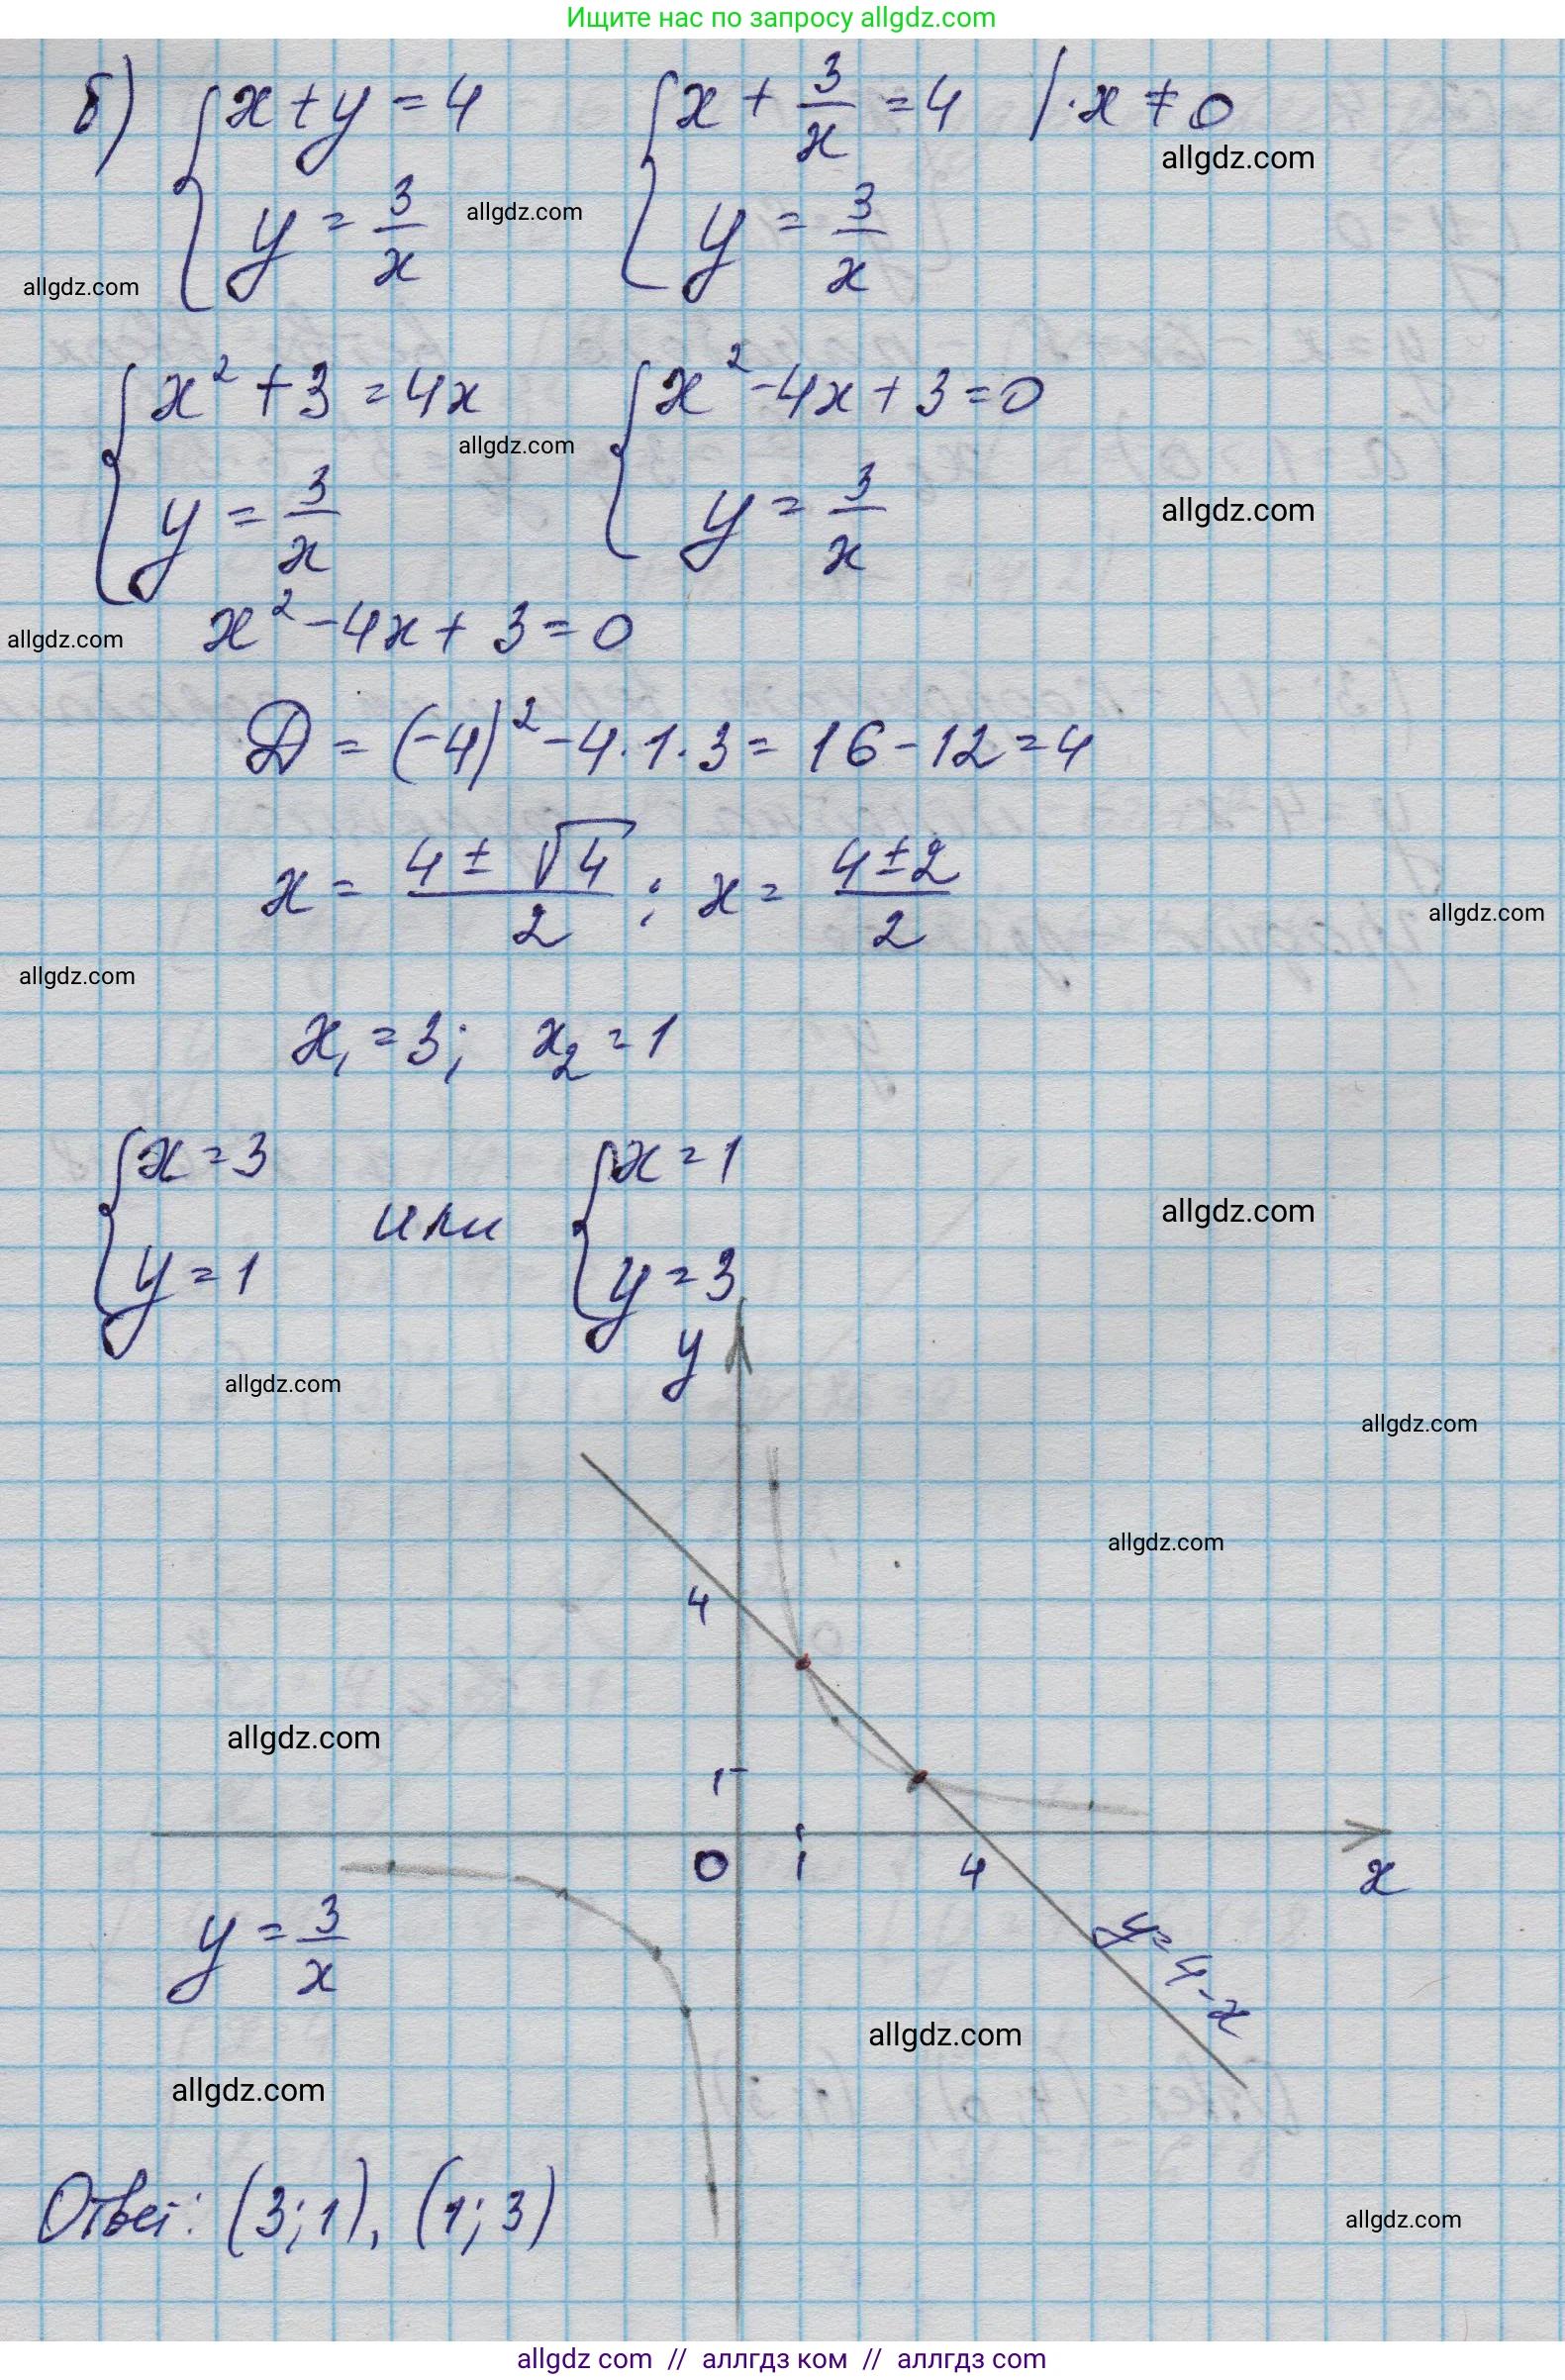 Ищите нас по запросу allgdz.com
б) { x + y = 4 { x + 3/x = 4 | · x ≠ 0
allgdz.com
{ y = 3/x allgdz.com { y = 3/x
allgdz.com
{ x² + 3 = 4x { x² - 4x + 3 = 0
allgdz.com
{ y = 3/x { y = 3/x allgdz.com
allgdz.com x² - 4x + 3 = 0
D = (-4)² - 4 · 1 · 3 = 16 - 12 = 4
x = (4 ± √4)/2 ; x = (4 ± 2)/2
allgdz.com
allgdz.com
x₁ = 3; x₂ = 1
{ x = 3 { x = 1
или allgdz.com
{ y = 1 { y = 3
y
allgdz.com
allgdz.com
allgdz.com
4
allgdz.com
1
0 1 4 x
y = 3/x y = 4 - x
allgdz.com
allgdz.com
Ответ: (3; 1), (1; 3)
allgdz.com
allgdz com // аллгдз ком // аллгдз com